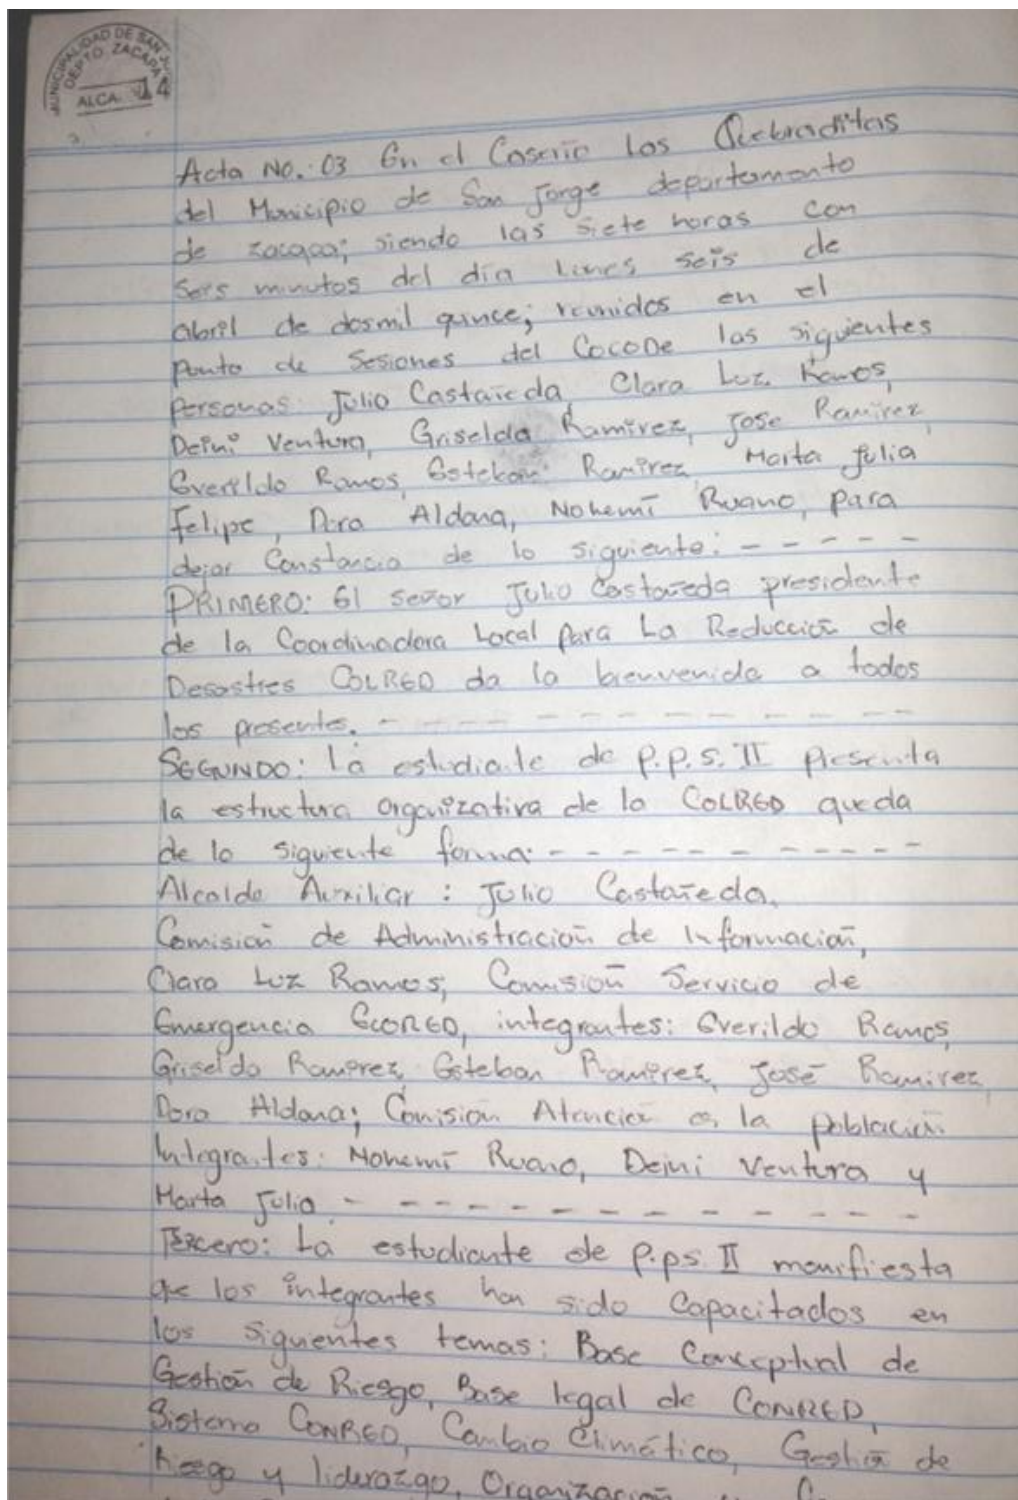 MUNICIPALIDAD DE SAN J
DEPTO. ZACAPA
ALCA
Acta No. 03 En el Caserío los Quebraditas
del Municipio de San Jorge departamento
de zacapa; siendo las siete horas con
seis minutos del día lunes seis de
abril de dosmil quince; reunidos en el
Punto de Sesiones del COCODE las siguientes
personas Julio Castañeda, Clara Luz Ramos,
Deini Ventura, Griselda Ramírez, Jose Ramirez,
Everildo Ramos, Esteban Ramirez, Marta Julia
Felipe, Dora Aldana, Nohemí Ruano, para
dejar Constancia de lo siguiente: - - - - -
PRIMERO: El señor Julio Castañeda presidente
de la Coordinadora Local Para La Reducción de
Desastres COLRED da la bienvenida a todos
los presentes. - - - - - - - - - - - -
SEGUNDO: La estudiante de P.P.S. II Presenta
la estructura organizativa de la COLRED queda
de la siguiente forma: - - - - - - - - - -
Alcalde Auxiliar : Julio Castañeda,
Comisión de Administración de Información,
Clara Luz Ramos, Comisión Servicio de
Emergencia ECORED, integrantes: Everildo Ramos,
Griselda Ramírez, Esteban Ramírez, José Ramirez,
Dora Aldana; Comisión Atención a la población
Integrantes: Nohemí Ruano, Deini Ventura y
Marta Julia - - - - - - - - - - -
Tercero: La estudiante de P.ps. II manifiesta
que los integrantes han sido Capacitados en
los siguentes temas: Base Conceptual de
Gestión de Riesgo, Base legal de CONRED,
Sistema CONRED, Cambio Climático, Gestión de
Riesgo y liderazgo, Organización